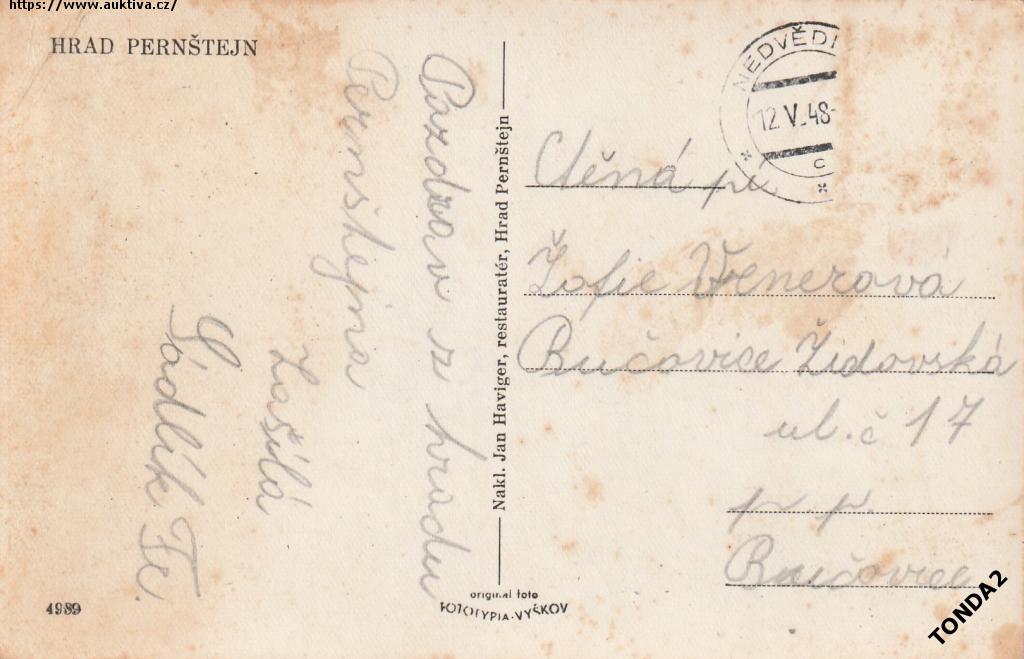 https://www.auktiva.cz/
HRAD PERNŠTEJN
Pozdrav z hradu
Pernštejna
Zasílá
Sádlík Fr.
4989
Nakl. Jan Haviger, restauratér, Hrad Pernštejn
original foto
FOTOTYPIA-VYŠKOV
NEDVĚDI
12.V.48-
C
Ctěná
Žofie
Bučovice Židovská
ul. č 17
p.p.
Bučovice
TONDA2